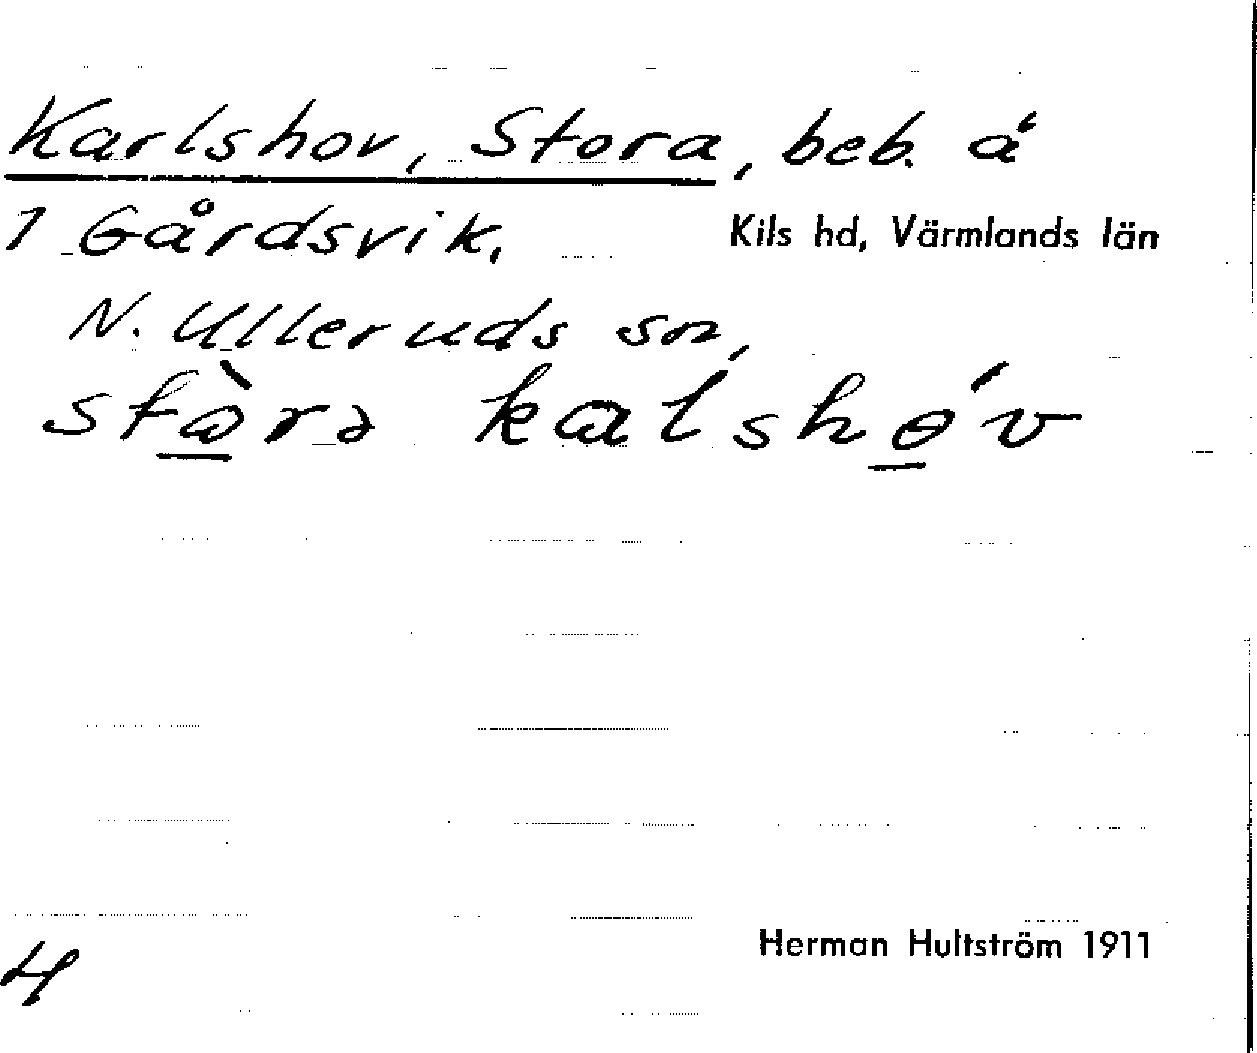 Karlshov, Stora, beb. å
1 Gårdsvik, Kils hd, Värmlands län
N. Ulleruds sn,
kalshɵ́v
Herman Hultström 1911
4